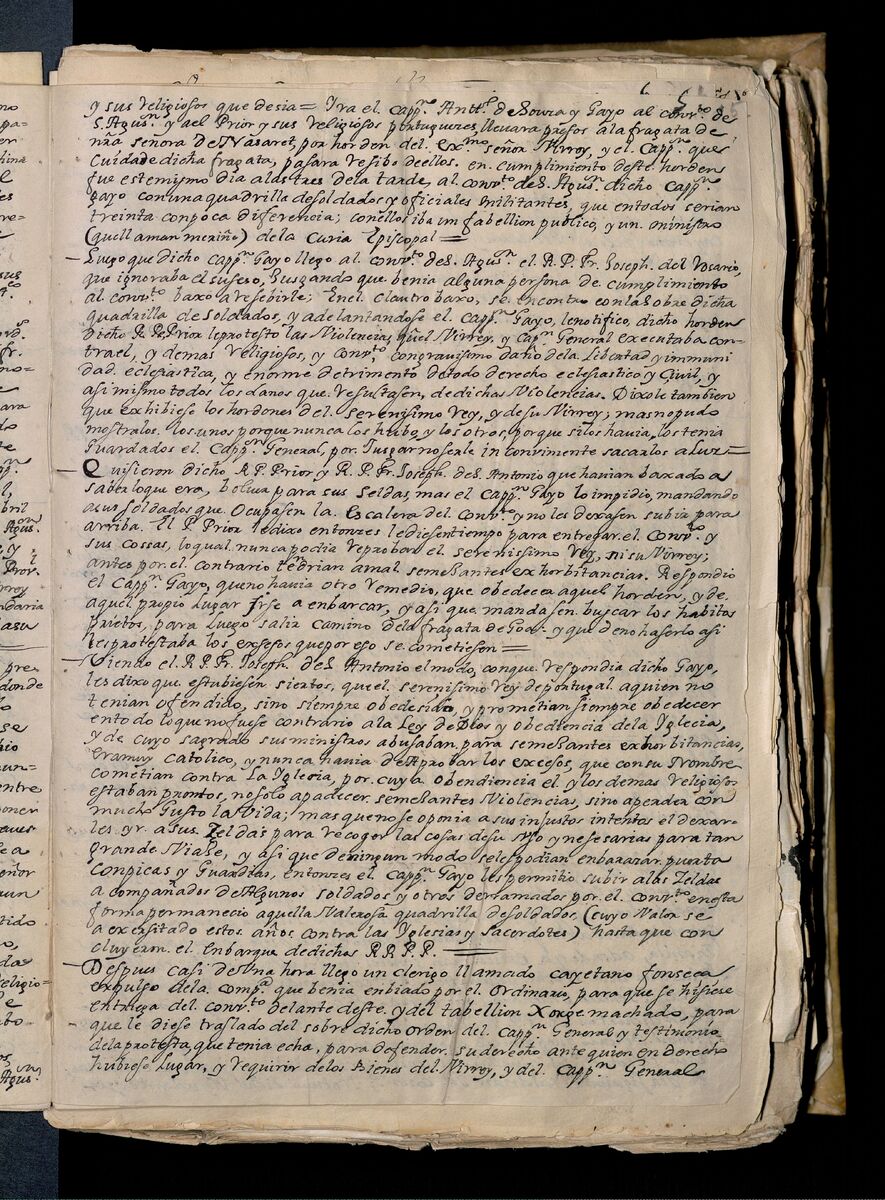 y sus religiosos que desia= Yra el Capp.ⁿ Antt.º de Soura y Gayo al conv.to de
S. Agus.ⁿ y a el Prior y sus religiosos portugueses, llevara presos a la fragata de
nřa señora de Nasaret, por horden del exmo señor Virrey, y el Capp.ⁿ que
Cuida de dicha fragata, pasara resibo de ellos. en cumplimiento deste horden
fue este mismo dia a las tres de la tarde, al conv.to de S. Agus.ⁿ dicho Capp.ⁿ
gayo con una quadrilla de soldados y oficiales militantes, que en todos serian
treinta con poca diferencia; con ellos iba un tabellion publico, y un ministro
(que llaman meriño) de la Curia Episcopal=
Luego que dicho Capp.ⁿ Gayo llego al conv.to de S. Agus.ⁿ el R.P. Fr. Joseph. del Rosario,
que ignoraba el suseso, Jusgando que benia alguna persona de cumplimiento
al conv.to baxo a resebirle; En el claustro baxo, se encontro con la sobre dicha
quadrilla de soldados, y adelantandose el Capp.ⁿ Gayo, le notifico, dicho horden
Dicho R.P. Prior le protesto las Violencias, q̃ el Virrey, y Capp.ⁿ General executaba con-
tra el, y demas religiosos, y conv.to con gravisimo daño de la libertad y immuni
dad. eclesiastica, y enorme detrimento de todo derecho eclesiastico y Civil, y
asi mismo todos los danos que resultasen, de dichas Violencias. Dixole tambien
que exhibiese los hordones del serenisimo rey, y de su Virrey; mas no pudo
mostralos. los unos porque nunca los hubo, y los otros, porque si los havia, los tenia
guardados el Capp.ⁿ General, por Jusgar no serle inconvimente sacarlos a luz=
Quisieron dicho R.P. Prior y R.P. Fr. Joseph. de S. Antonio que havian baxado a
saber lo que era, bolver para sus seldas, mas el Capp.ⁿ Gayo lo impidio, mandando
a sus soldados que ocupasen la Escalera del Conv.to y no les dexasen subir para
arriba. El P. Prior le dixo entonzes le diesen tiempo para entregar el Conv.to y
sus cossas, lo qual nunca podia reprobar el serenissimo Rey, ni su Virrey;
antes por el contrario tendrian a mal semejantes exhorbitancias. Respondio
el Capp.ⁿ Gayo, que no havia otro remedio, que obedecer aquel horden, y de
aquel propio Lugar Irse a embarcar, y asi que mandasen buscar los habitos
prietos, para luego salir camino de la fragata de Goa. y que de no haserlo asi
les protestaba los exsesos que por eso se cometiesen=
Viendo el R.P. Fr. Joseph. de S. Antonio el modo, con que respondia dicho Gayo,
les dixo que estubiesen siertos, que el serenisimo Rey de portugal a quien no
tenian ofendido, sino siempre obedesido, y prometian siempre obedecer
en todo lo que no fuese contrario a la Ley de Dios y obediencia de la Yglecia,
y de cuyo sagrado sus ministros abusaban para semejantes exhorbitancias,
era muy catolico, y nunca havia de Aprobar los excesos, que con su Nombre
cometian contra La Yglesia, por cuya obendiencia el y los demas religiosos
estaban prontos, no solo a padecer semejantes Violencias, sino a perder con
mucho Gusto la Vida; mas que no se oponia a sus injustos intentos el dexar-
les yr a sus Zeldas para recoger las cosas de su uso y nesesarias para tan
grande Viaje, y asi que de ningun modo sele podian enbarazar. puesta
con picas y Guardias, entonzes el Capp.ⁿ Gayo les permitio subir a las Zeldas
a compañados de Algunos soldados y otros derramados por el Conv.to en esta
forma permanecio aquella Valerosa quadrilla de soldados, (cuyo Valor se
a exersitado estos años contra las Yglesias y sacerdotes) hasta que con
cluyeron el enbarque de dichos R.R.P.P.=
Despues casi de Una hora llego un clerigo llamado Cayetano fonseca
expulso de la Comp.ª que benia enbiado por el Ordinario, para que se hisiese
entrega del Conv.to delante deste y del tabellion Xorge machado, para
que le diese traslado del sobre dicho orden del Capp.ⁿ General y testimonio
de la protesta, que tenia echa, para defender su derecho ante quien en Derecho
hubiese Lugar, y requirir de los Bienes del Virrey, y del Capp.ⁿ General